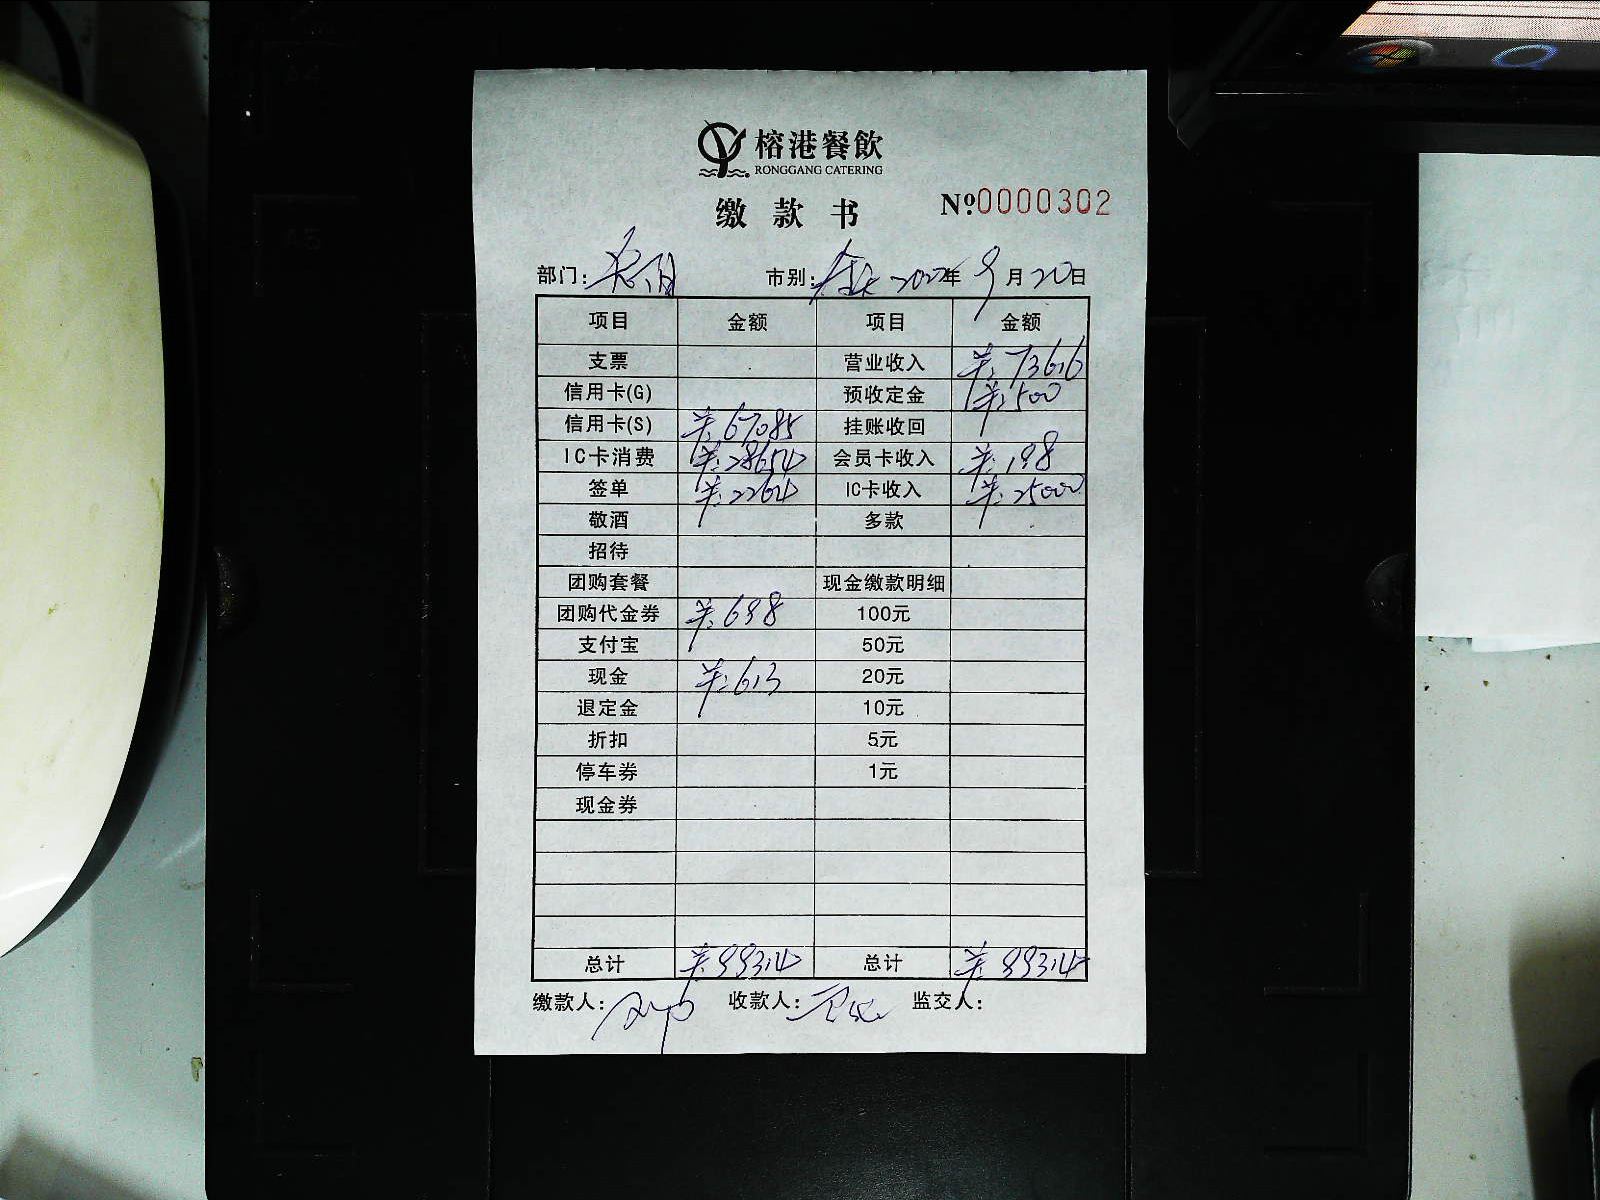 榕港餐飲
RONGGANG CATERING
缴款书
Nº0000302
部门: 市别: 2022年9月20日
项目 金额 项目 金额
支票 营业收入 ¥:73616
信用卡(G) 预收定金 ¥:500
信用卡(S) ¥:67085 挂账收回
IC卡消费 ¥:28654 会员卡收入 ¥:198
签单 ¥:2264 IC卡收入 ¥:25000
敬酒 多款
招待
团购套餐 现金缴款明细
团购代金券 ¥:698 100元
支付宝 50元
现金 ¥:613 20元
退定金 10元
折扣 5元
停车券 1元
现金券
总计 ¥:99314 总计 ¥:99314
缴款人: 收款人: 监交人:
A4
A5